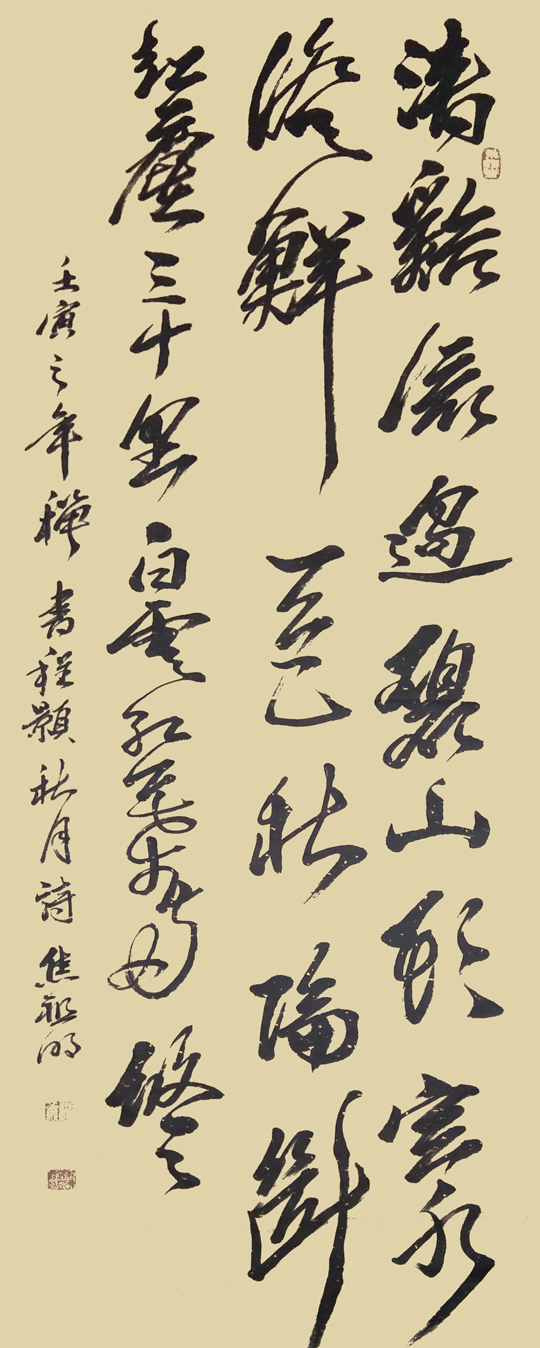 清谿流過碧山頭空水
澄鮮一色秋隔斷
紅塵三十里白雲紅葉兩悠々
壬寅之年書程顥秋月詩焦祖明